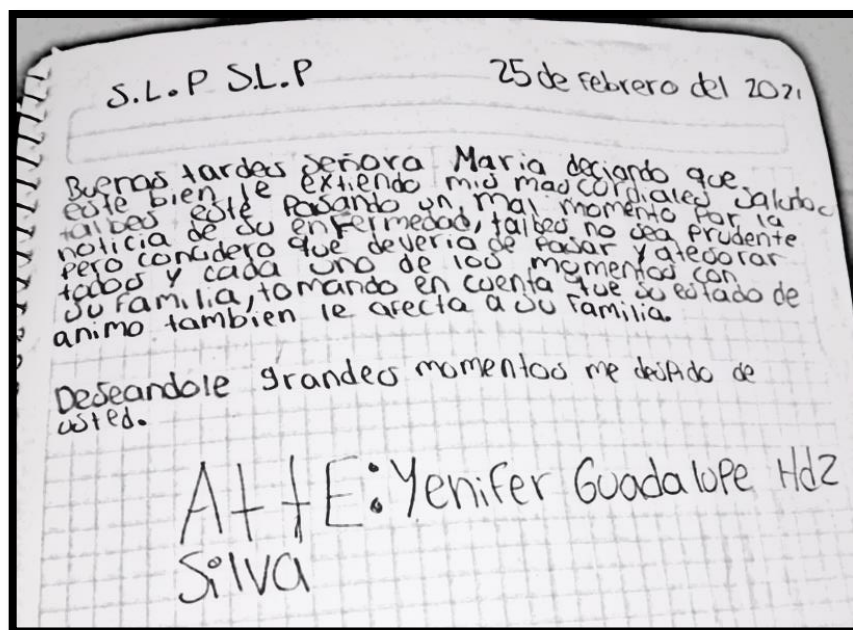 S.L.P S.L.P 25 de Febrero del 2021
Buenas tardes Señora Maria deciando que
este bien le extiendo mis mas cordiales saludos
talbes este Pasando un mal momento Por la
noticia de su enfermedad, talbes no sea prudente
pero concidero que deveria de pasar y atesorar
todos y cada uno de los momentos con
su Familia, tomando en cuenta que su estado de
animo tambien le afecta a su Familia.
Deseandole grandes momentos me despido de
usted.
AttE: Yenifer Guadalupe Hdz
Silva